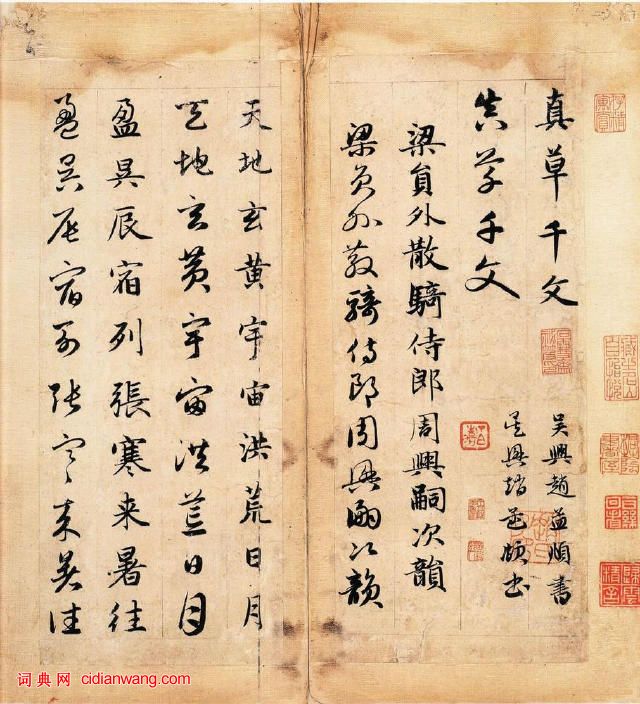 真草千文
吴興趙孟頫書
真草千文
吴興趙孟頫書
梁員外散騎侍郎周興嗣次韻
梁員外散騎侍郎周興嗣次韻
天地玄黄宇宙洪荒日月
天地玄黄宇宙洪荒日月
盈昃辰宿列張寒来暑往
盈昃辰宿列張寒来暑往
词典网 cidianwang.com